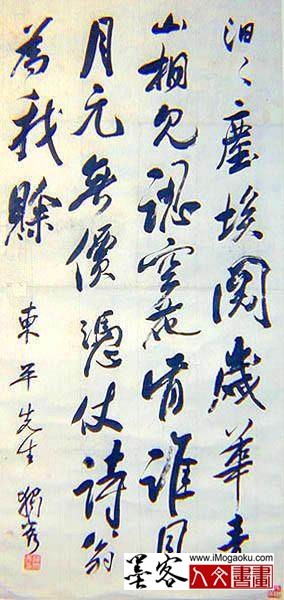 汩〻塵埃閱歲華青
山相見認空花誰風
月元無價憑仗詩翁
為我賒
東平先生 獨秀
墨客
www.iMogaoku.com
人文書畫